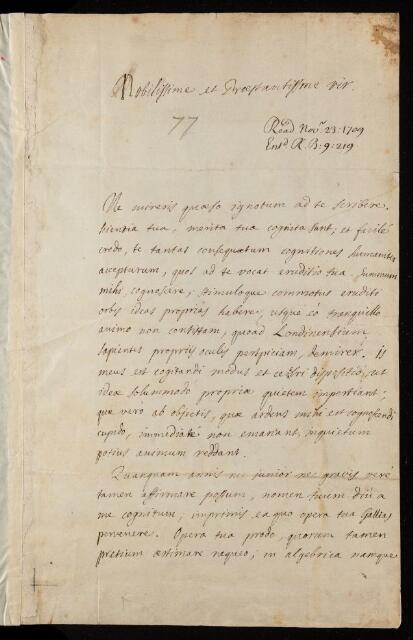 Nobilissime et Præstantissime vir.
77
Read Nov.r 23: 1709
Ent.d R. B: 9: 219
Ne mireris quæso ignotum ad te scribere,
tua, merita tua cognita sunt; et facilè
credo, te tantas consequutum cognitiones humaniter
accepturum, quos ad te vocat eruditio tua. Summum
mihi cognoscere, stimuloque commotus eruditi
orbis ideas proprias habere; utque eo tranquillo
animo non consistam, quoad Londinensium
sapientes propriis oculis perspiciam, demirer. Is
meus est cogitandi modus et dispositio, ut
ideæ solummodo propriæ quietem impertiant;
quæ vero ab objectis, quæ ardens mihi est cognoscendi
cupido, immediatè non emanant, inquietum
potius animum reddant.
Quanquam annis nec junior nec gravis verè
tamen affirmare possum, nomen tuum diu a
me cognitum; imprimis ea quo opera tua Gallias
pervenere. Opera tua prodo, quorum tamen
pretium æstimare nequeo; in algebrica namque